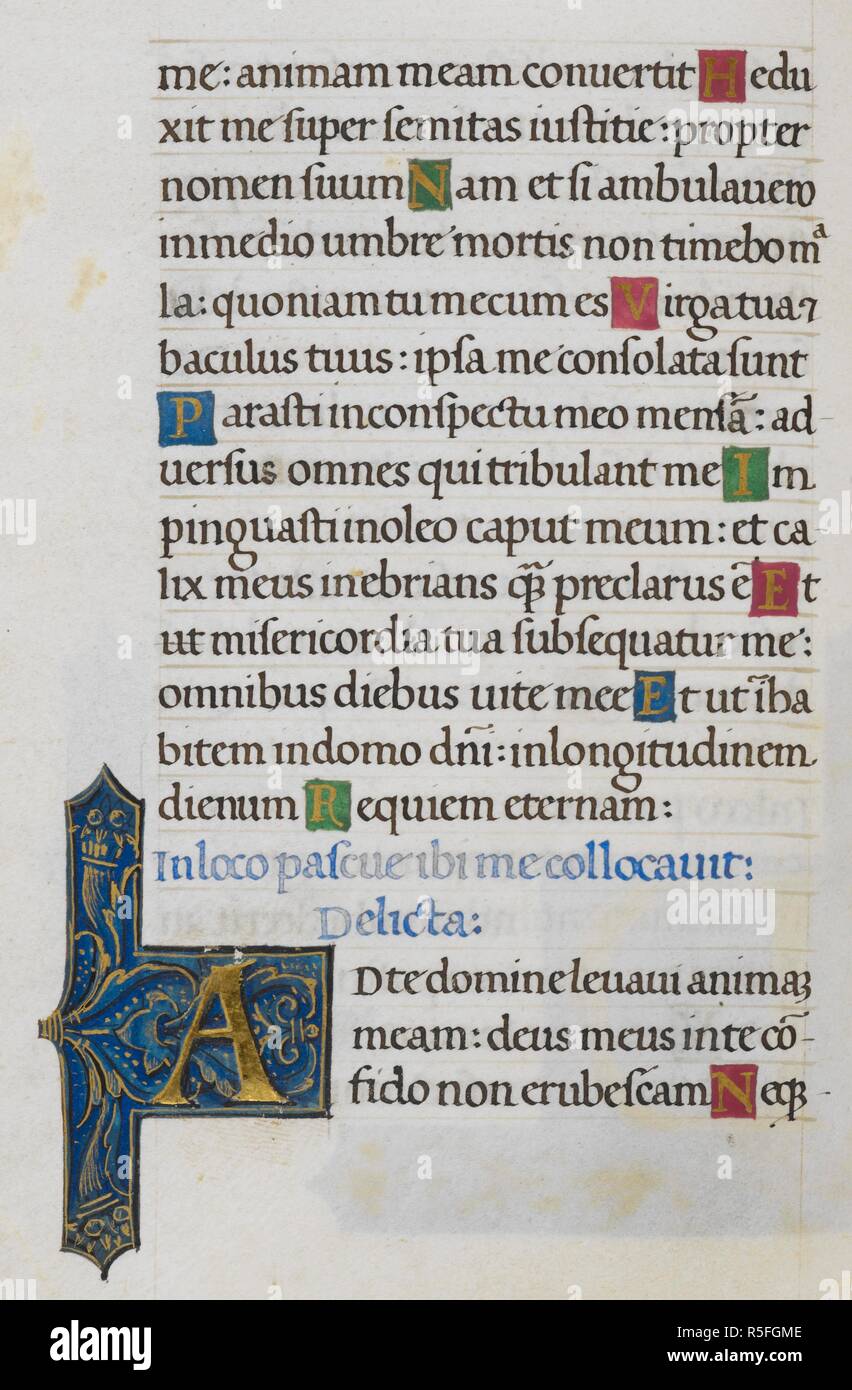 me: animam meam conuertit Hedu
xit me super semitas iustitie: propter
nomen suum Nam et si ambulauero
in medio umbre mortis non timebo mᵃ
la: quoniam tu mecum es Virga tua ⁊
baculus tuus: ipsa me consolata sunt
Parasti in conspectu meo mensā: ad
uersus omnes qui tribulant me Im
pinguasti in oleo caput meum: et ca
lix meus inebrians qꝫ̄ preclarus ē Et
ut misericordia tua subsequatur me:
omnibus diebus uite mee Et ut īha
bitem in domo dñi: in longitudinem
dierum Requiem eternam:
In loco pascue ibi me collocauit:
Delicta:
AD te domine leuaui animaꝫ
meam: deus meus in te cō-
fido non erubescam Neqꝫ
alamy
Image ID: R5FGME
www.alamy.com